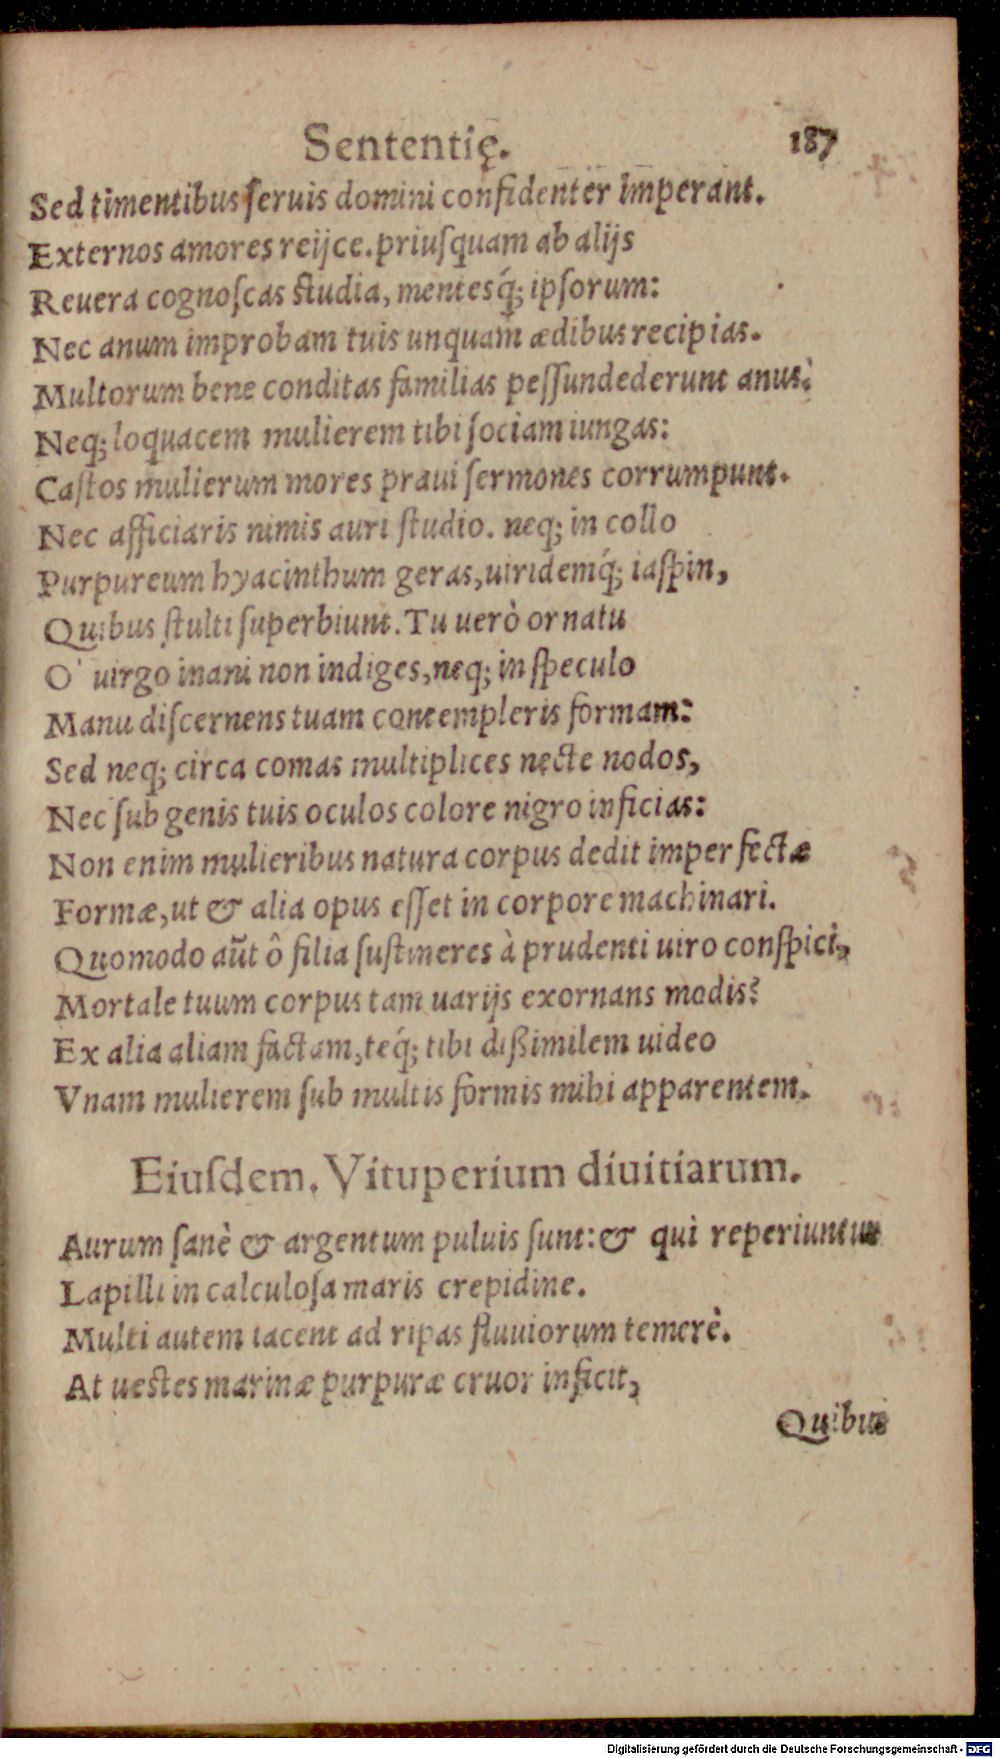 Sententię. 187
Sed timentibus ſeruis domini confidenter imperant.
Externos amores reijce. priuſquam ab alijs
Reuera cognoſcas ſtudia, mentesq́; ipſorum:
Nec anum improbam tuis unquam ædibus recipias.
Multorum bene conditas familias peſſundederunt anus.
Neq; loquacem mulierem tibi ſociam iungas:
Caſtos mulierum mores praui ſermones corrumpunt.
Nec afficiaris nimis auri ſtudio. neq; in collo
Purpureum hyacinthum geras, uiridemq́; iaſpin,
Quibus ſtulti ſuperbiunt. Tu uerò ornatu
O uirgo inani non indiges, neq; in ſpeculo
Manu diſcernens tuam contempleris formam:
Sed neq; circa comas multiplices necte nodos,
Nec ſub genis tuis oculos colore nigro inficias:
Non enim mulieribus natura corpus dedit imperfectæ
Formæ, ut & alia opus eſſet in corpore machinari.
Quomodo aūt ô filia ſuſtineres à prudenti uiro conſpici,
Mortale tuum corpus tam uarijs exornans modis?
Ex alia aliam factam, teq́; tibi dißimilem uideo
Vnam mulierem ſub multis formis mihi apparentem.
Eiuſdem. Vituperium diuitiarum.
Aurum ſanè & argentum puluis ſunt: & qui reperiuntur
Lapilli in calculoſa maris crepidine.
Multi autem iacent ad ripas fluuiorum temerè.
At ueſtes marinæ purpuræ cruor inficit,
Quibus
Digitalisierung gefördert durch die Deutsche Forschungsgemeinschaft - DFG